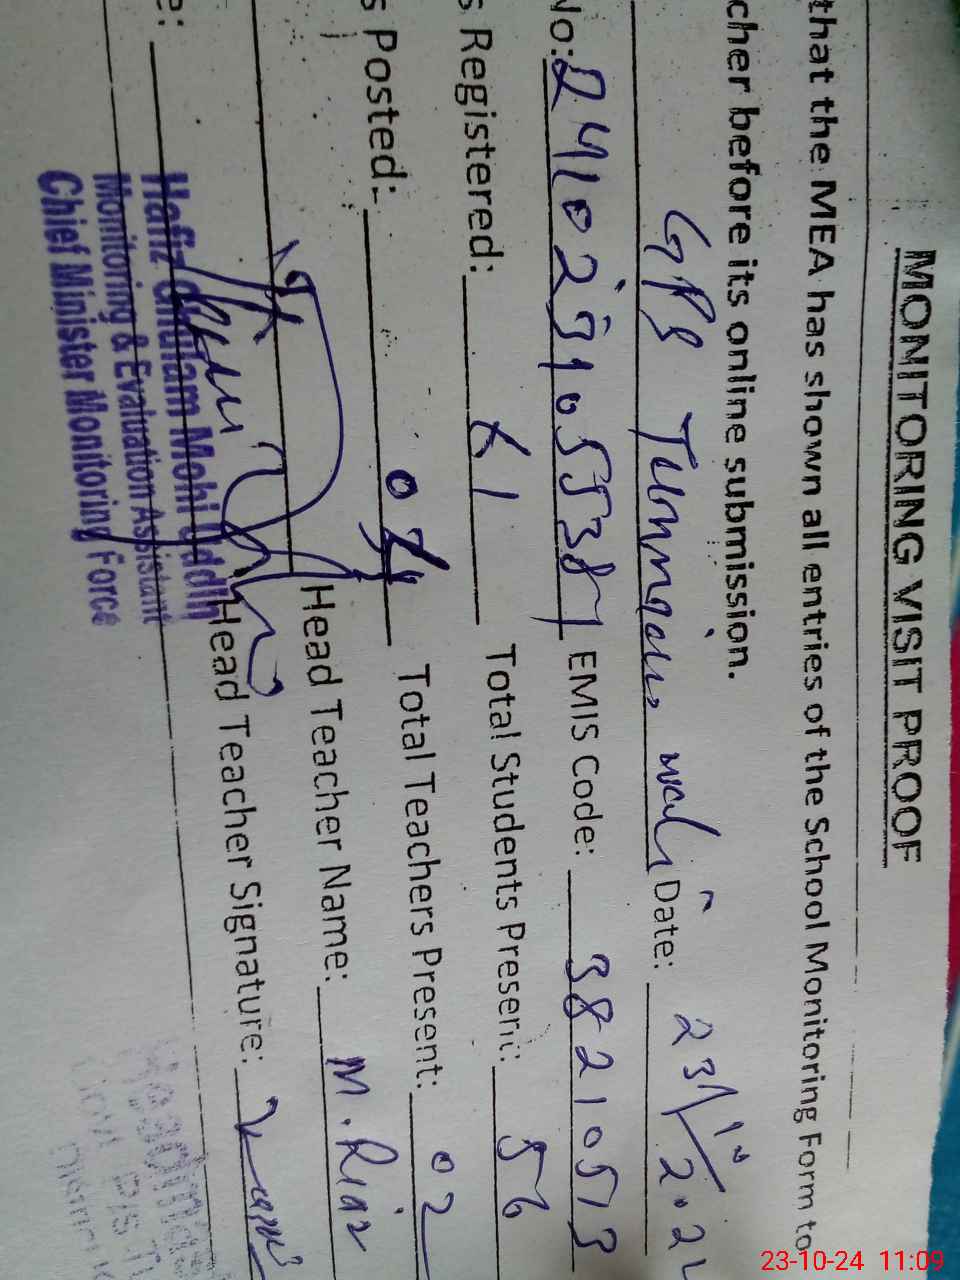 MONITORING VISIT PROOF
that the MEA has shown all entries of the School Monitoring Form to
cher before its online submission.
GPS wali Date: 23/10/2024
No: EMIS Code: 38210513
s Registered: 61 Total Students Present: 56
s Posted: 04 Total Teachers Present: 02
Head Teacher Name: M. Riaz
e: Head Teacher Signature:
Hafiz Ghulam Mohi Uddin
Monitoring & Evaluation Assistant
Chief Minister Monitoring Force
23-10-24 11:09